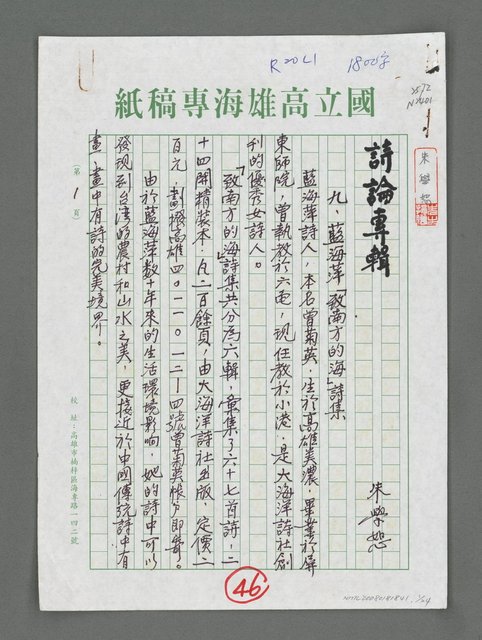 R20L1 1800字
國立高雄海專稿紙
詩論專輯
朱學恕
九、藍海萍「致南方的海」詩集
朱學恕
藍海萍詩人，本名曾菊英，生於高雄美濃，畢業於屏
東師院，曾執教於六龜，現任教於小港，是大海洋詩社創
利的優秀女詩人。
「致南方的海」詩集共分為六輯，彙集了六十七首詩，二
十四開精裝本，凡二百餘頁，由大海洋詩社出版，定價二
百元，劃撥高雄四○一一○一二—四號曾菊英帳戶即售。
由於藍海萍數十年來的生活環境影响，她的詩中可以
發現到台湾的農村和山水之美，更接近於中國傳統詩中有
畫，畫中有詩的完美境界。
（第 1 頁）
校 址：高雄市楠梓區海專路一四二號
46
NMTL20080181841 1/24